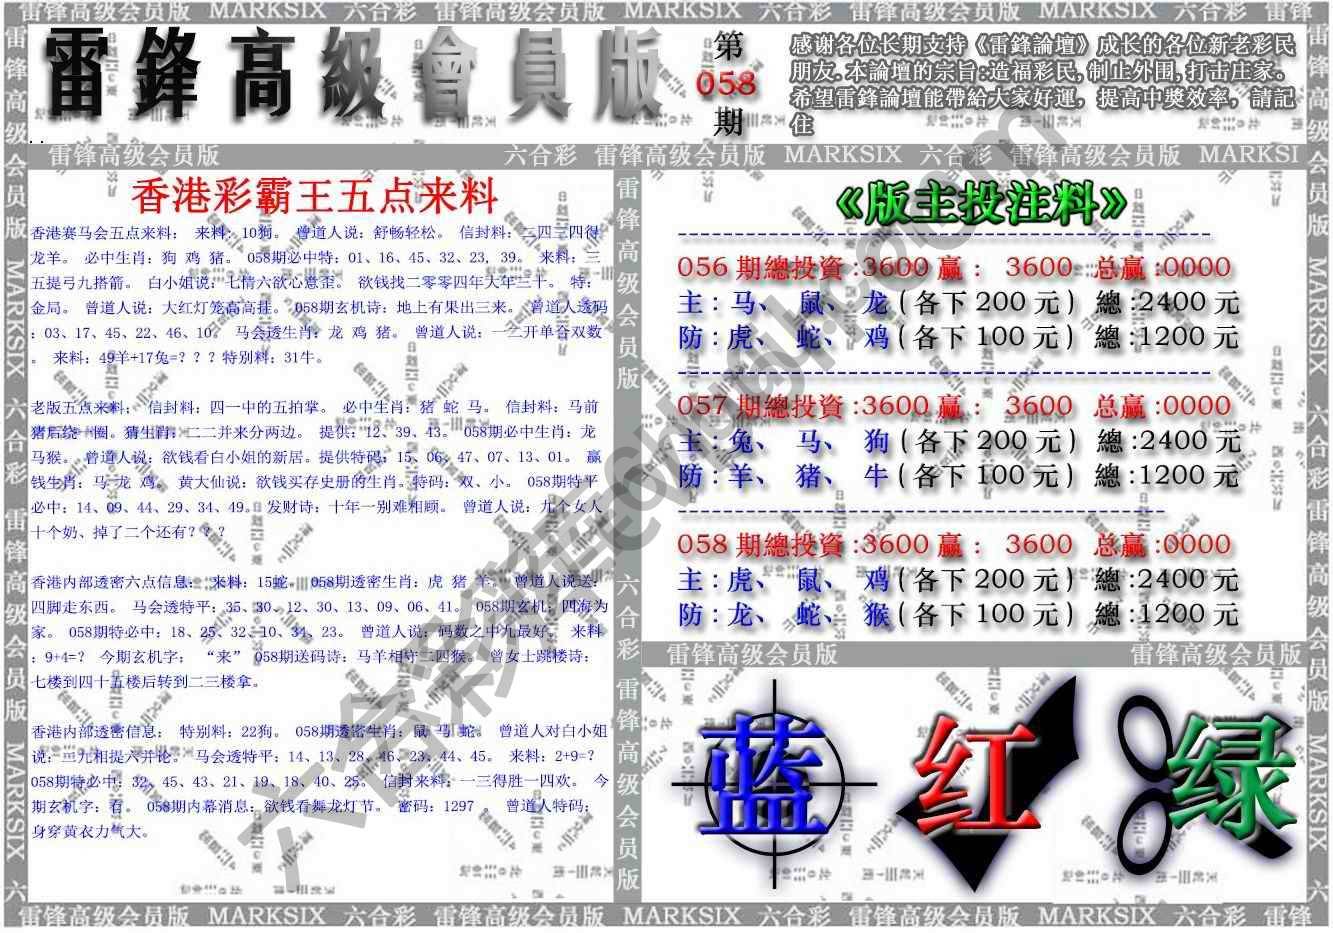 雷锋高级会员版 MARKSIX 六合彩 雷锋高级会员版 MARKSIX 六合彩 雷锋高级会员版 MARKSIX 六合彩 雷锋
雷鋒高級會員版
第
058
期
感谢各位长期支持《雷鋒論壇》成长的各位新老彩民
朋友.本論壇的宗旨:造福彩民,制止外围,打击庄家。
希望雷鋒論壇能帶給大家好運，提高中獎效率，請記
住
雷锋高级会员版 六合彩 雷锋高级会员版 MARKSIX 六合彩 雷锋高级会员版 MARKSI
香港彩霸王五点来料
香港赛马会五点来料； 来料：10狗。 曾道人说：舒畅轻松。 信封料：二四三四得
龙羊。 必中生肖：狗 鸡 猪。 058期必中特：01、16、45、32、23, 39。 来料：三
五提弓九搭箭。 白小姐说：七情六欲心意歪。 欲钱找二零零四年大年三十。 特：
金局。 曾道人说：大红灯笼高高挂。 058期玄机诗：地上有果出三来。 曾道人透码
：03、17、45、22、46、10。 马会透生肖：龙 鸡 猪。 曾道人说：一二开单合双数
。 来料：49羊+17兔=？？？特别料：31牛。
老版五点来料； 信封料：四一中的五拍掌。 必中生肖：猪 蛇 马。 信封料：马前
猪后绕一圈。猜生肖：二二并来分两边。 提供：12、39、43。 058期必中生肖：龙
马猴。 曾道人说：欲钱看白小姐的新居。提供特码：15、06、47、07、13、01。 赢
钱生肖：马 龙 鸡。 黄大仙说：欲钱买存史册的生肖。特码：双、小。 058期特平
必中：14、09、44、29、34、49。 发财诗：十年一别难相顾。 曾道人说：九个女人
十个奶、掉了二个还有？？？
香港内部透密六点信息； 来料：15蛇。 058期透密生肖：虎 猪 羊。 曾道人说送：
四脚走东西。 马会透特平：35、30、12、30、13、09、06、41。 058期玄机：四海为
家。 058期特必中：18、25、32、10、34、23。 曾道人说：码数之中九最好。 来料
：9+4=？ 今期玄机字； “来” 058期送码诗：马羊相守二四猴。 曾女士跳楼诗：
七楼到四十五楼后转到二三楼拿。
香港内部透密信息； 特别料：22狗。 058期透密生肖：鼠 马 蛇。 曾道人对白小姐
说：二九相提六并论。 马会透特平；14、13、28、46、23、44、45。 来料：2+9=？
058期特必中：32、45、43、21、19、18、40、25。 信封来料：一三得胜一四欢。 今
期玄机字：看。 058期内幕消息：欲钱看舞龙灯节。 密码：1297 。 曾道人特码：
身穿黄衣力气大。
《版主投注料》
056 期總投資:3600 赢： 3600 总赢:0000
主：马、 鼠、 龙(各下 200 元) 總:2400 元
防:虎、 蛇、 鸡(各下 100 元) 總:1200 元
057 期總投資:3600 赢： 3600 总赢:0000
主：兔、 马、 狗(各下 200 元) 總:2400 元
防:羊、 猪、 牛(各下 100 元) 總:1200 元
058 期總投資:3600 赢： 3600 总赢:0000
主:虎、 鼠、 鸡(各下 200 元) 總:2400 元
防:龙、 蛇、 猴(各下 100 元) 總:1200 元
雷锋高级会员版 雷锋高级会员版
蓝 红 绿
雷锋高级会员版 MARKSIX 六合彩 雷锋高级会员版 MARKSIX 六合彩 雷锋高级会员版 MARKSIX 六合彩 雷锋